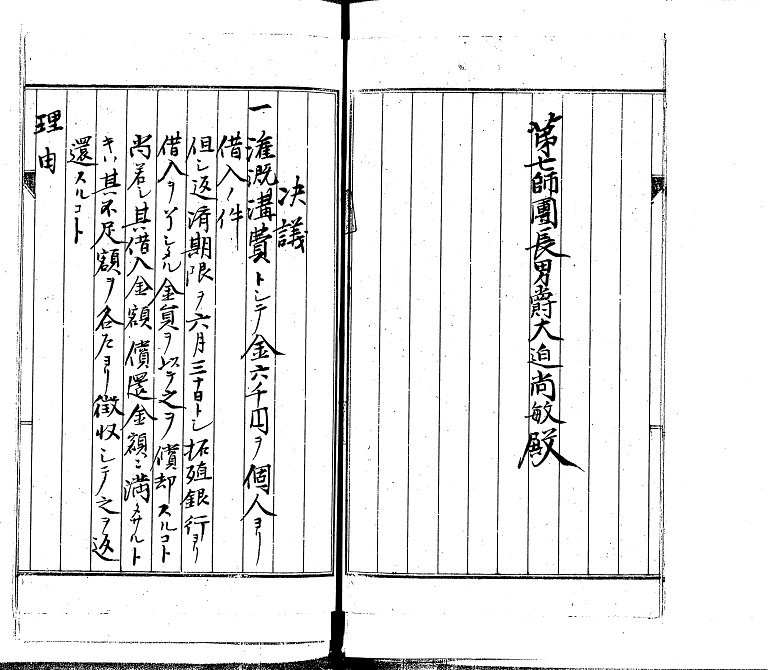 第七師團長男爵大迫尚敏殿
決議
一灌漑溝費トシテ金六千円ヲ個人ヨリ
借入ノ件
但シ返済期限ヲ六月三十日トシ拓殖銀行ヨリ
借入ヲナシタル金員ヲ以テ之ヲ償却スルコト
尚若シ其借入金額償還金額ニ満タザルト
キハ其不足額ヲ各戸ヨリ徴収シテ之ヲ返
還スルコト
理由